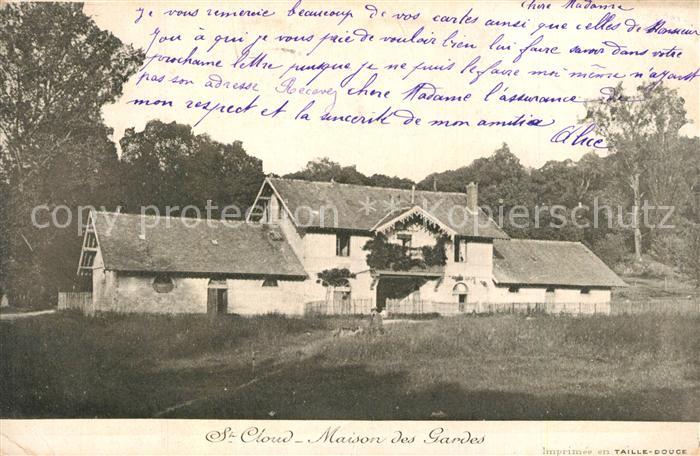 Chère Madame
Je vous remercie beaucoup de vos cartes ainsi que celles de Monsieur
You à qui je vous prie de vouloir bien lui faire savoir dans votre
prochaine lettre puisque je ne puis le faire moi même n'ayant
pas son adresse Recevez chère Madame l'assurance de
mon respect et la sincérité de mon amitié
Alice
copy protected * Kopierschutz
St Cloud _ Maison des Gardes
Imprimée en TAILLE-DOUCE